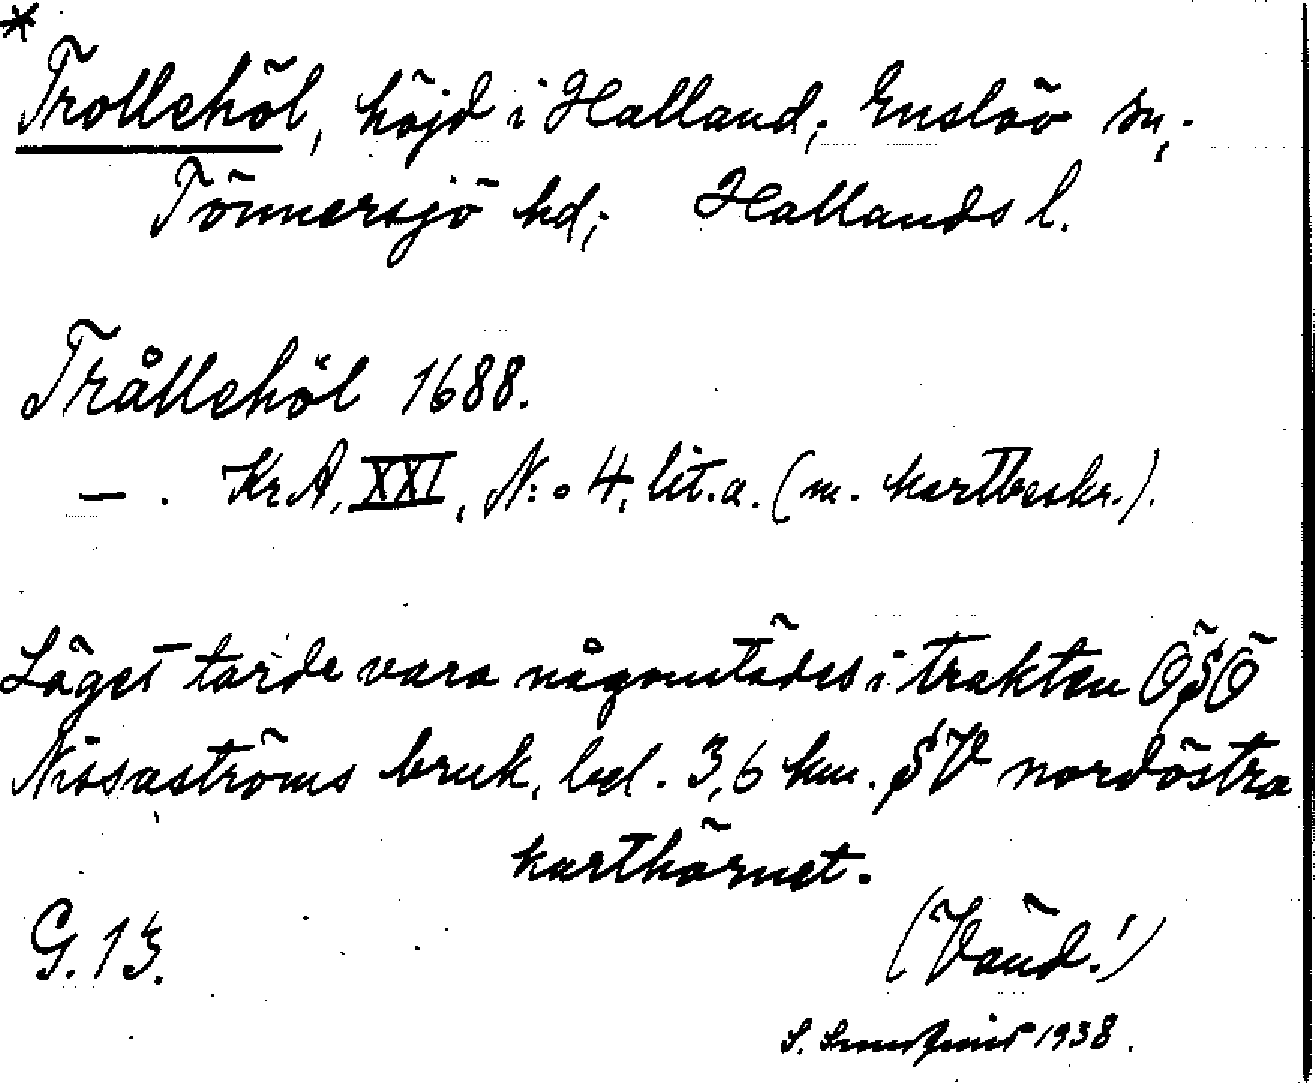 *
Trollehöl, höjd i Halland; Enslöv sn,;
Tönnersjö hd; Hallands l.
Trållehöl 1688.
— . Kr.A, XXI, N:o 4, lit.a. (m. kartbeskr.).
Läget torde vara någonstädes i trakten ÖSÖ
Nissaströms bruk, bel. 3,6 km. SV nordöstra
karthörnet.
G. 13.
(Vänd!)
S. 1938.